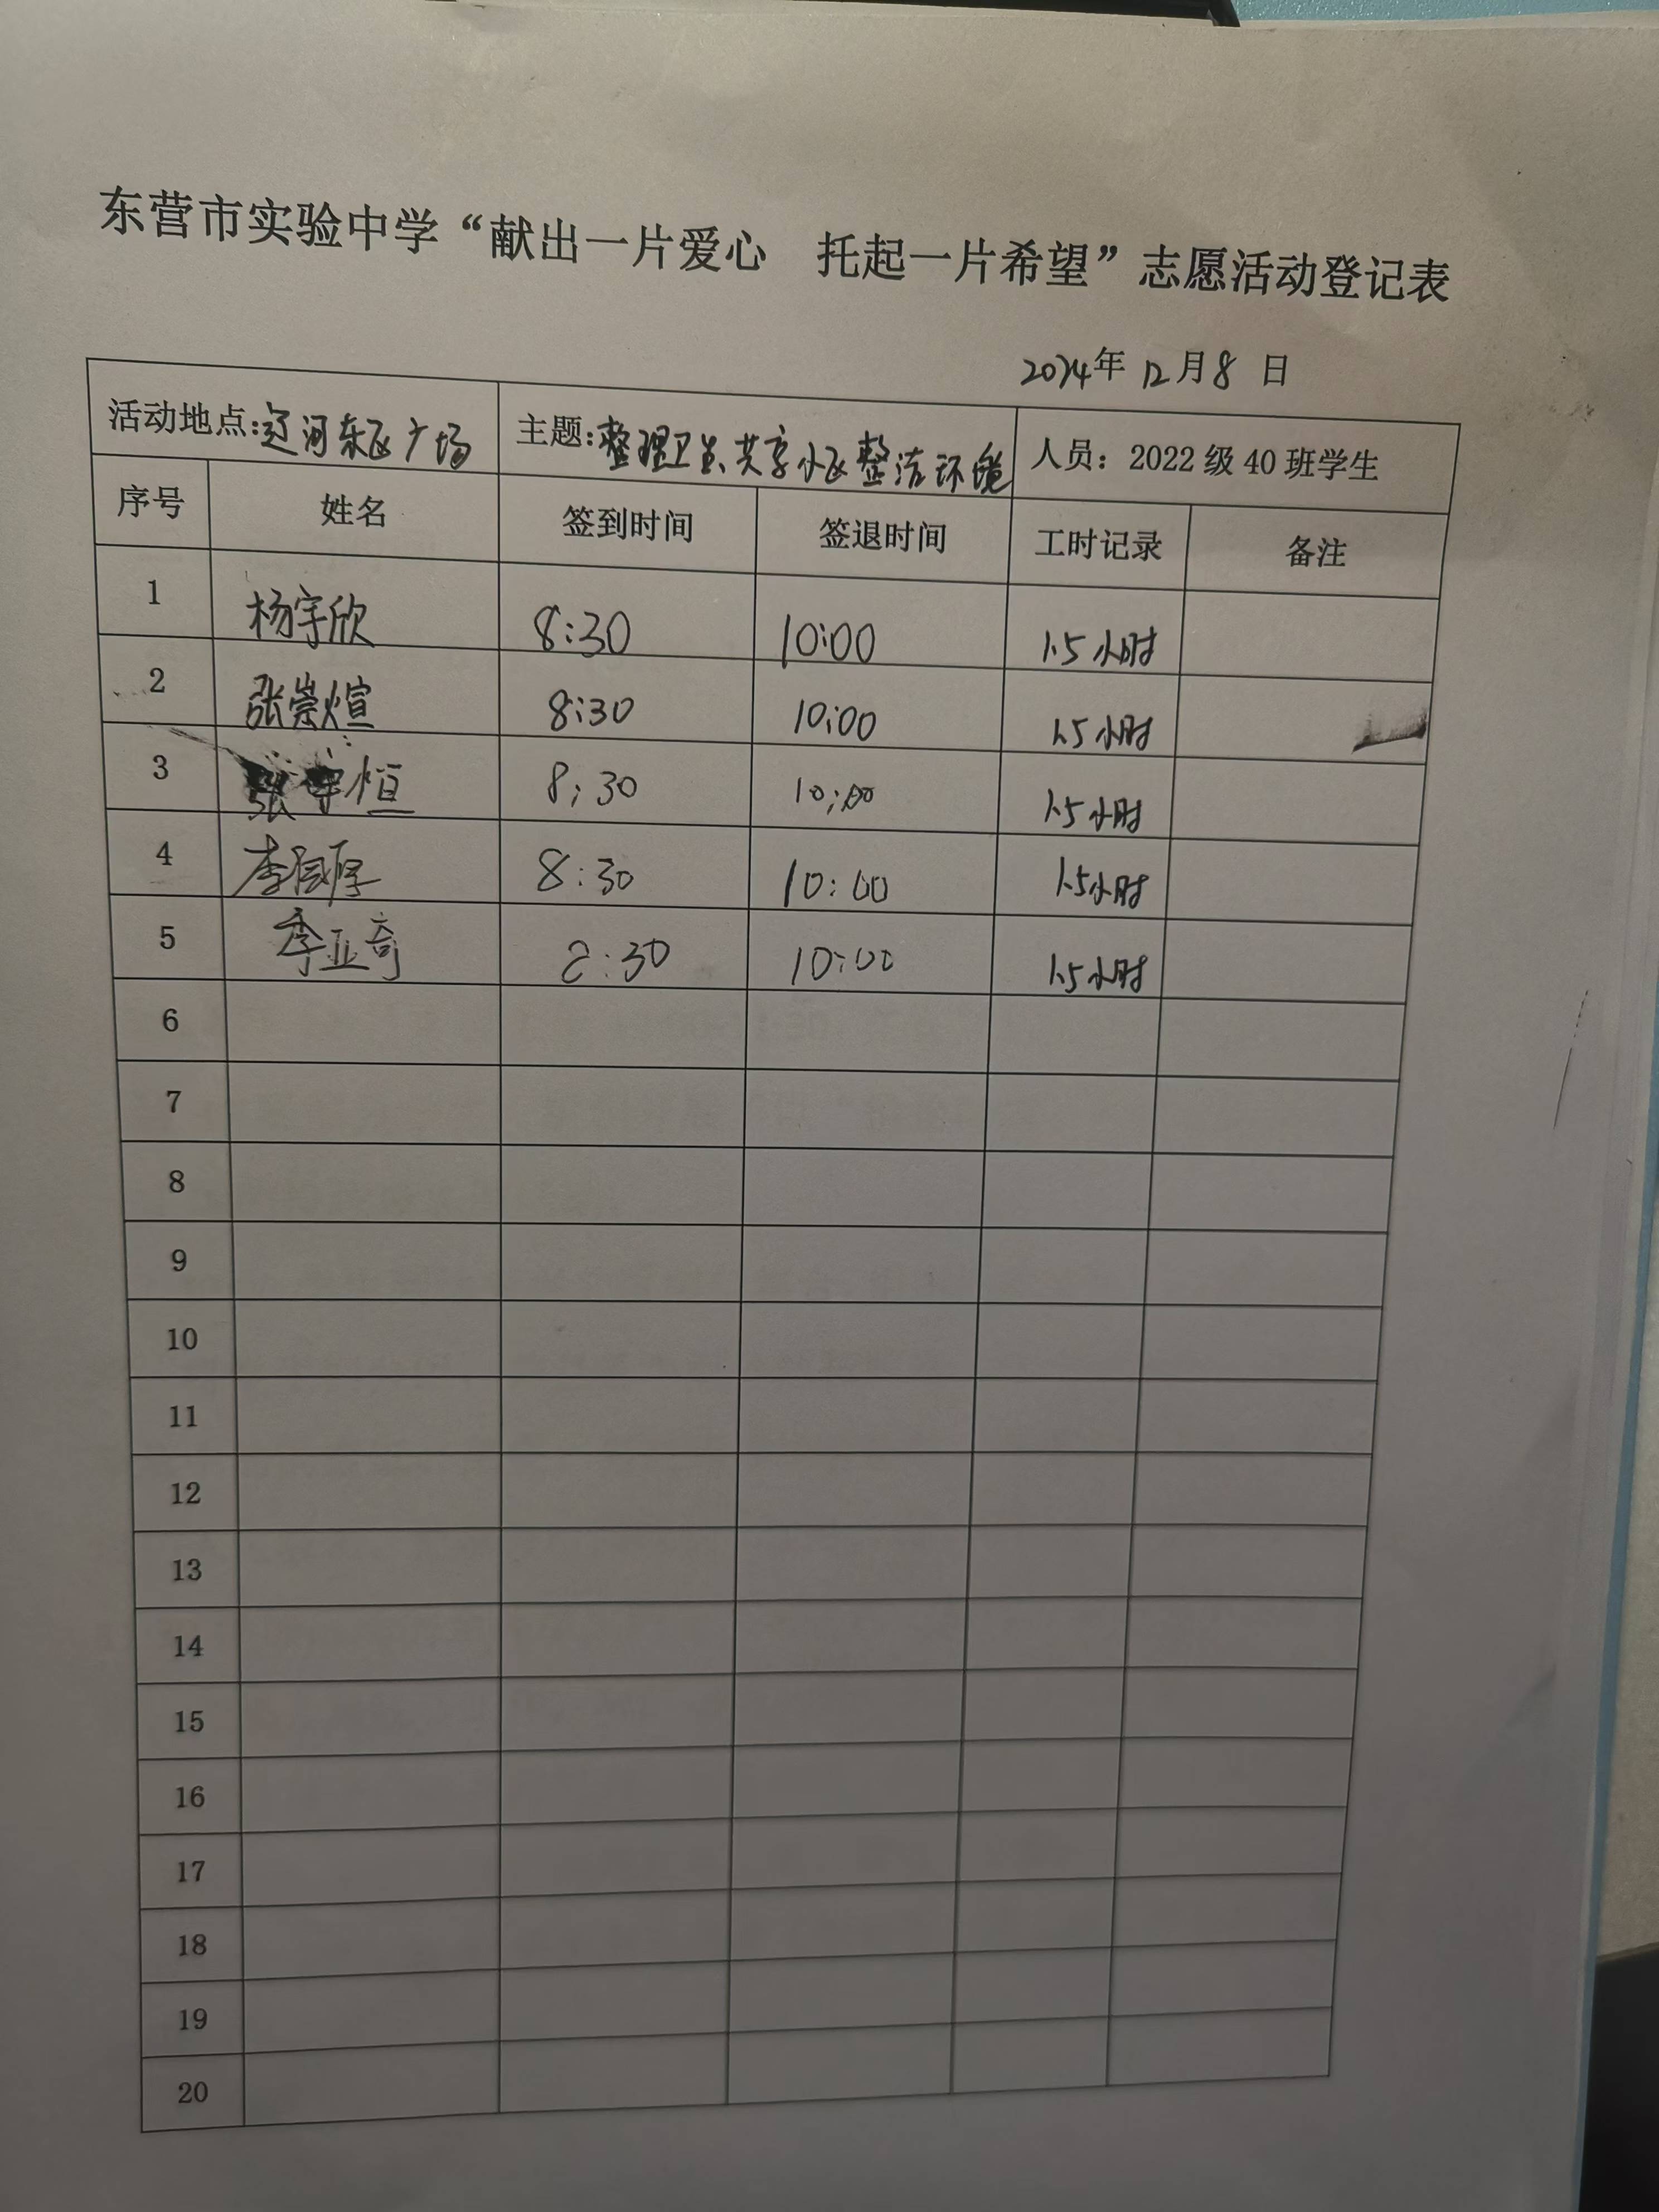 东营市实验中学“献出一片爱心 托起一片希望”志愿活动登记表
2024年 12月8日
活动地点:辽河东区广场 主题:整理卫生,共享小区整洁环境 人员：2022级40班学生
序号 姓名 签到时间 签退时间 工时记录 备注
1 杨宇欣 8:30 10:00 1.5小时
2 张崇煊 8:30 10:00 1.5小时
3 张宇恒 8:30 10:00 1.5小时
4 李润厚 8:30 10:00 1.5小时
5 季亚奇 8:30 10:00 1.5小时
6
7
8
9
10
11
12
13
14
15
16
17
18
19
20